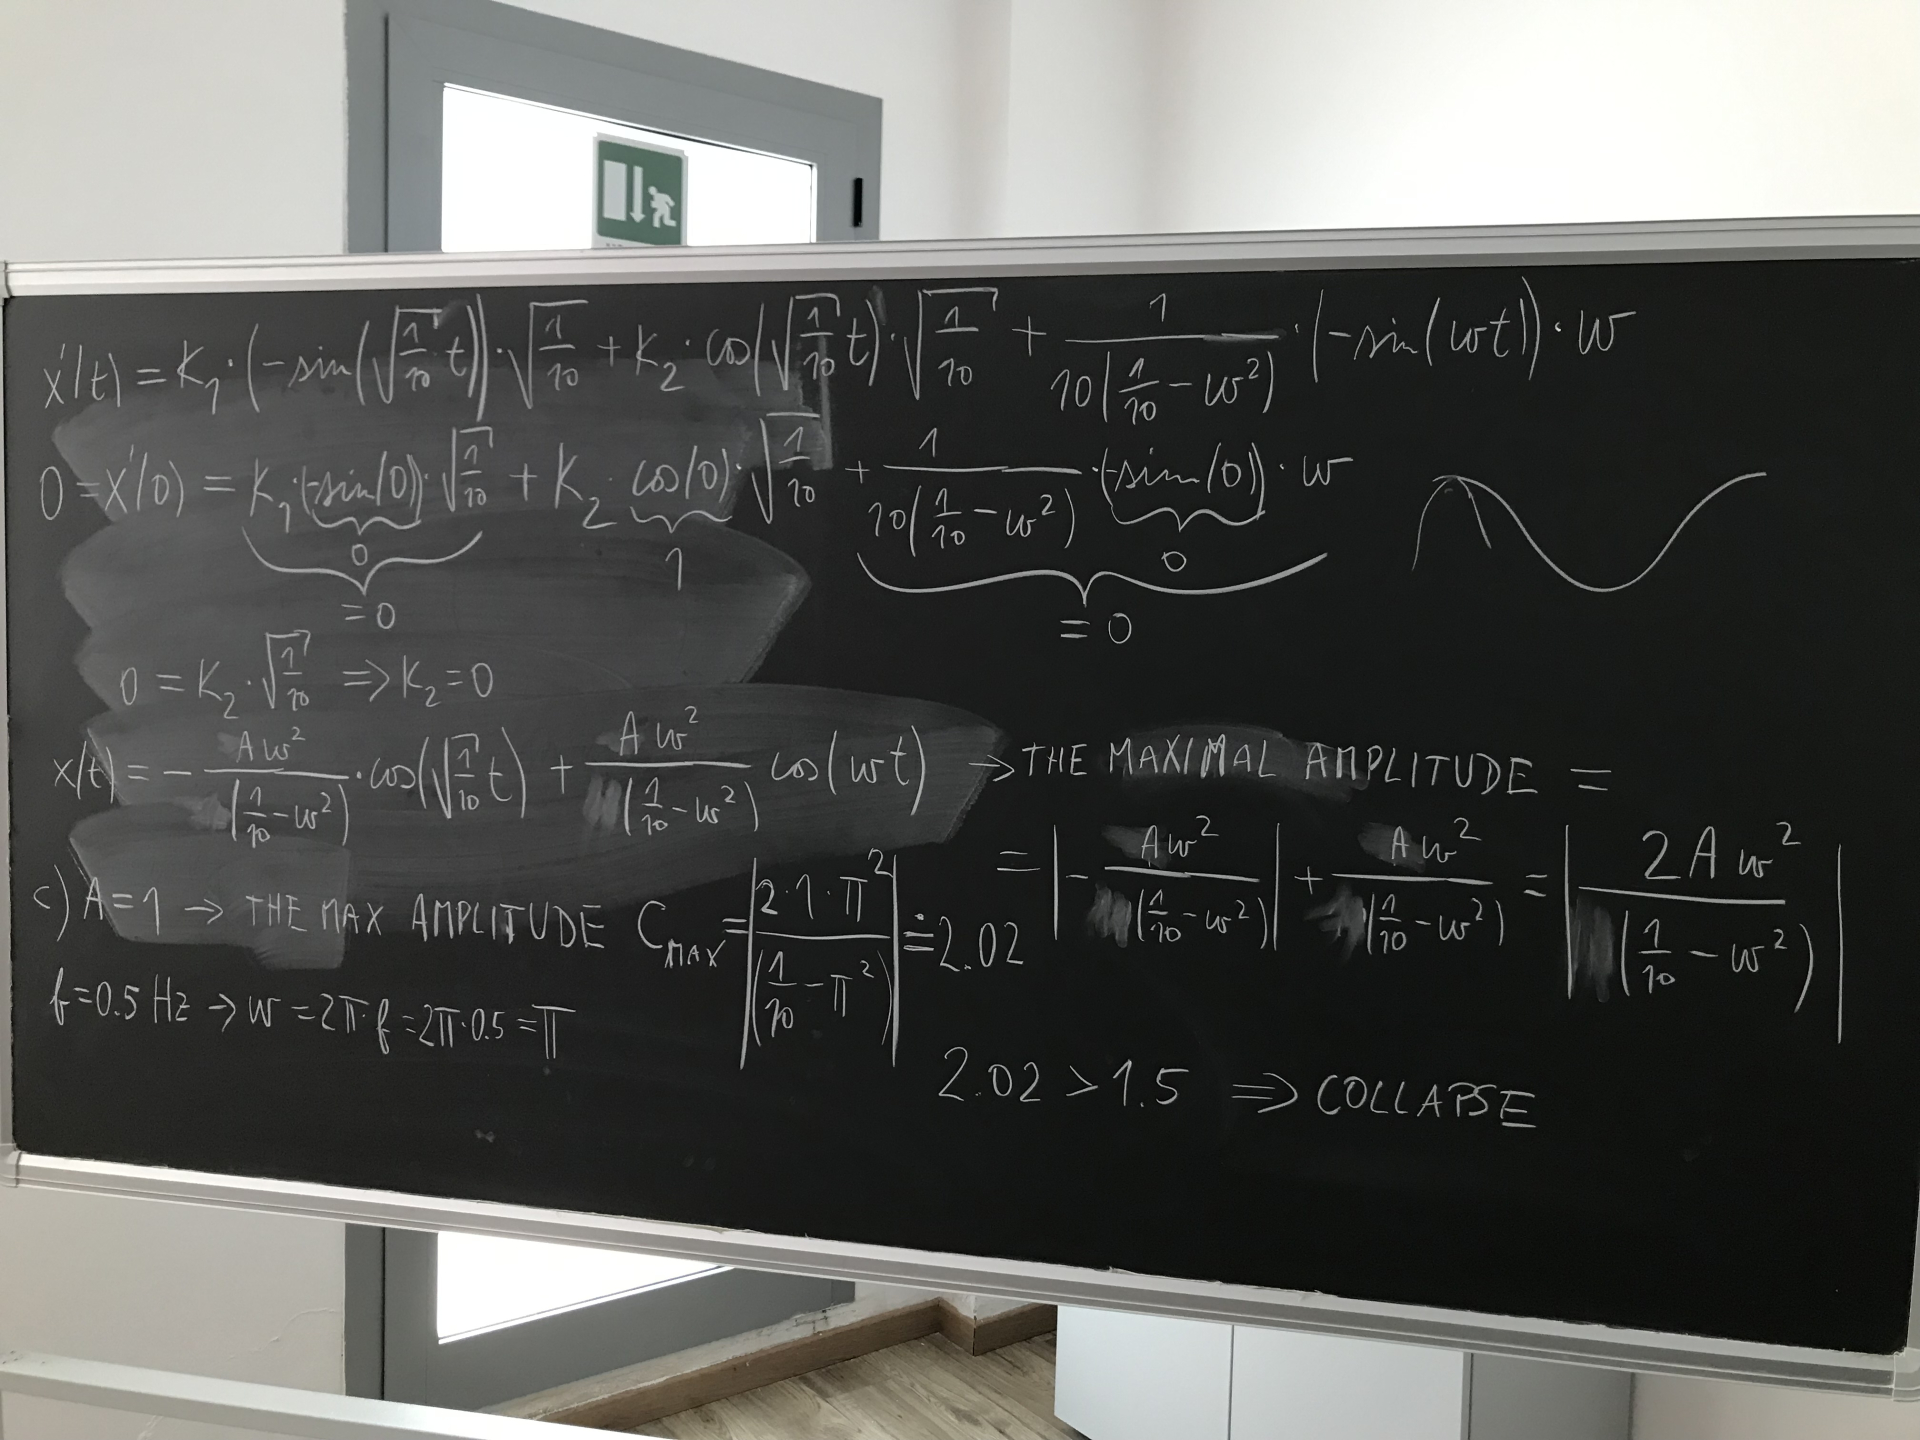 x'(t) = K₁·(-sin(√(1/10) t))·√(1/10) + K₂·cos(√(1/10) t)·√(1/10) + 1/(10(1/10 - w²))·(-sin(wt))·w
0 = x'(0) = K₁·(-sin(0))·√(1/10) + K₂·cos(0)·√(1/10) + 1/(10(1/10 - w²))·(-sin(0))·w
0 1 0
= 0 = 0
0 = K₂·√(1/10) ⇒ K₂ = 0
x(t) = - Aw²/(1/10 - w²)·cos(√(1/10) t) + Aw²/(1/10 - w²) cos(wt) → THE MAXIMAL AMPLITUDE =
= |- Aw²/(1/10 - w²)| + Aw²/(1/10 - w²) = |2Aw²/(1/10 - w²)|
c) A = 1 → THE MAX AMPLITUDE C_MAX = |2·1·π²/(1/10 - π²)| ≐ 2.02
f = 0.5 Hz → w = 2π·f = 2π·0.5 = π
2.02 > 1.5 ⇒ COLLAPSE